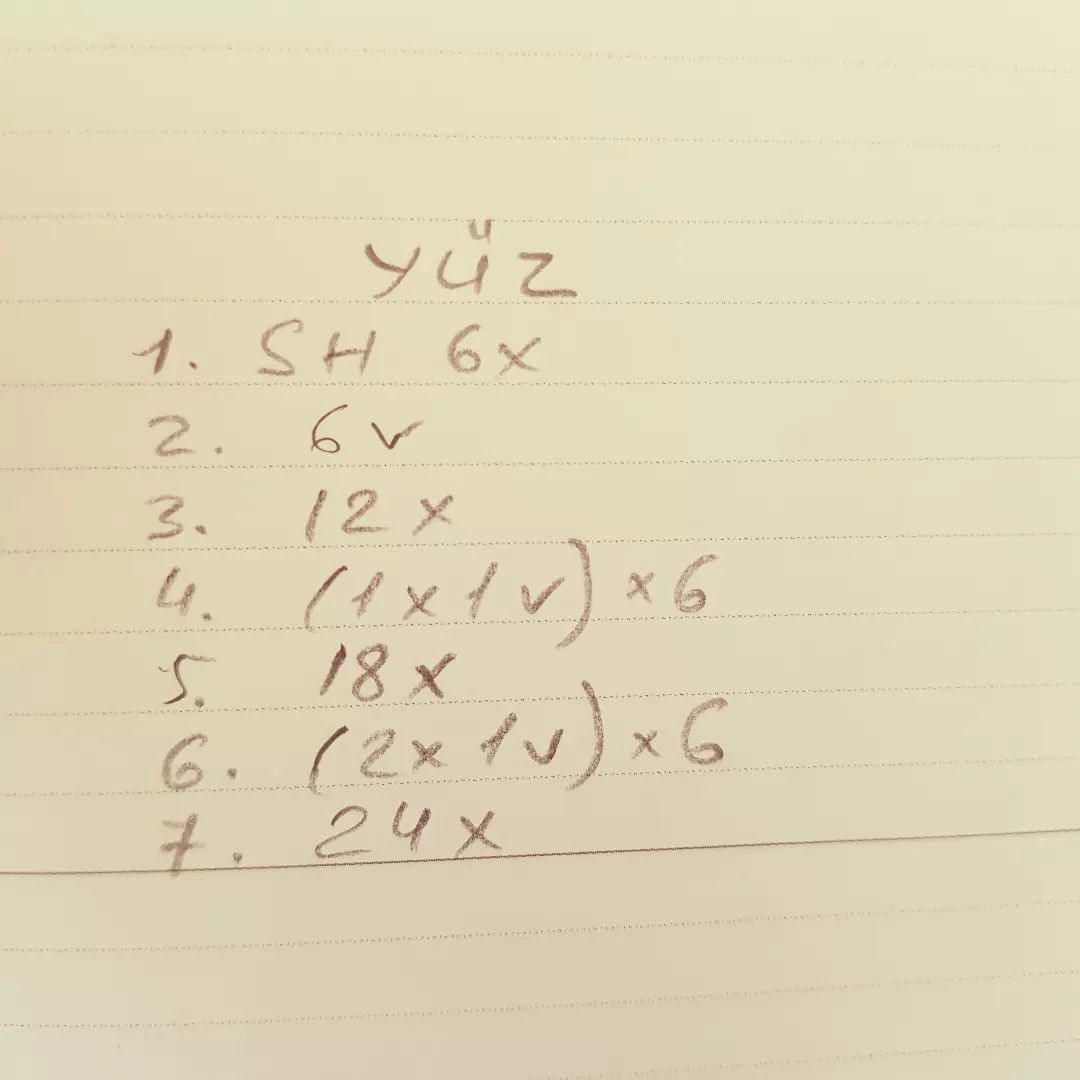 YÜZ
1. SH 6x
2. 6v
3. 12x
4. (1x1v)x6
5. 18x
6. (2x1v)x6
7. 24x